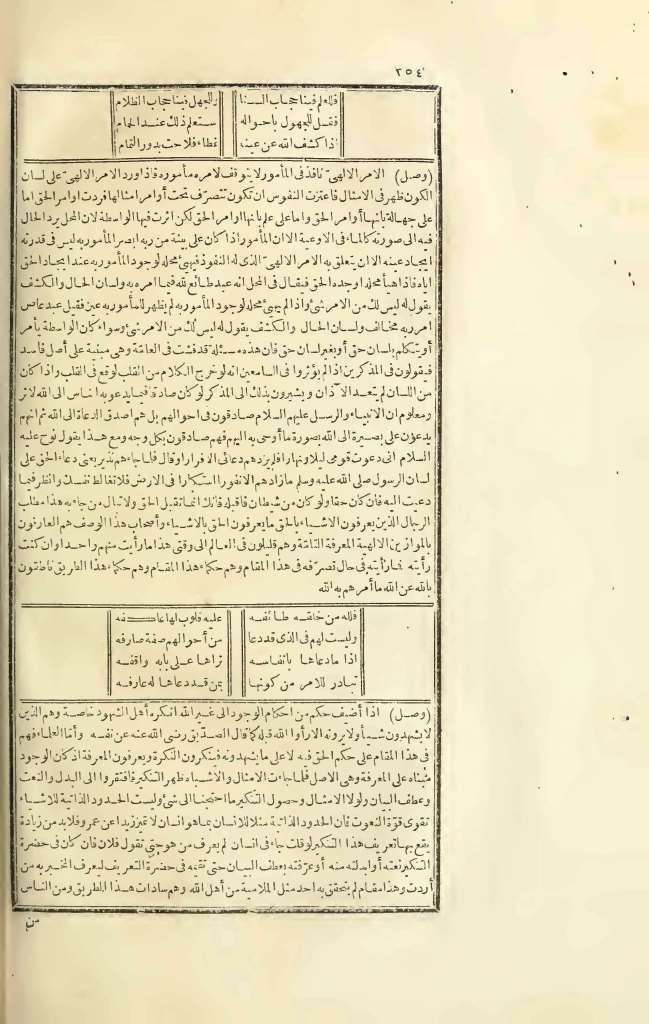 ٢٥٤
فللعلم فينا حجاب السنا وللجهل فينا حجاب الظلام
فقل للجهول باحواله ستعلم ذلك عند الحمام
اذا كشف الله عن عينه غطاء فلاحت بدور التمام
(وصل) الامر الالهي نافذ في المأمور لا يتوقف لامره مأموره فاذا ورد الامر الالهي على لسان
الكون ظهر في الامثال فاعتزت النفوس ان تكون تتصرف تحت أوامر امثالها فردت اوامر الحق اما
على جهالة بأنها أوامر الحق واما على علم بانها اوامر الحق لكن اثرت فيها الواسطة لان المحل يرد الحال
فيه الى صورته كالماء في الاوعية الا ان المأمور اذا كان على بينة من ربه ابصر المأمور به ليس في قدرته
ايجاد عينه الا ان يتعلق به الامر الالهي الذي له النفوذ فيهيئ محله لوجود المأمور به عند ايجاد الحق
اياه فاذا هيأ محله اوجده الحق فيقال في المحل انه عبد طائع لله فيما امره به ولسان الحال والكشف
يقول له ليس لك من الامر شئ واذا لم يهيئ محله لوجود المأمور به لم يظهر للمأمور به عين فقيل عبد عاص
امر ربه مخالف ولسان الحال والكشف يقول له ليس لك من الامر شئ وسواء كان الواسطة يأمر
أو يتكلم بلسان حق أو بغير لسان حق فان هذه مسئلة قد فشت في العامة وهي مبنية على أصل فاسد
فيقولون في المذكرين اذا لم يؤثروا في السامعين انه لو خرج الكلام من القلب لوقع في القلب واذا كان
من اللسان لم يتعد الآذان ويشيرون بذلك الى المذكر لو كان صادقا فيما يدعو به الناس الى الله لاثر
ومعلوم ان الانبياء والرسل عليهم السلام صادقون في احوالهم بل هم اصدق الدعاة الى الله ثم انهم
يدعون على بصيرة الى الله بصورة ما أوحى به اليهم فهم صادقون بكل وجه ومع هذا يقول نوح عليه
السلام اني دعوت قومي ليلا ونهارا فلم يزدهم دعائي الا فرارا وقال فلما جاءهم نذير يعني دعاء الحق على
لسان الرسول صلى الله عليه وسلم ما زادهم الا نفورا استكبارا في الارض فلا تغالط نفسك وانظر فيما
دعيت اليه فان كان حقا ولو كان من شيطان فاقبله فانك انما تقبل الحق ولا تبال من جاء به هذا مطلب
الرجال الذين يعرفون الاشياء بالحق ما يعرفون الحق بالاشياء وأصحاب هذا الوصف هم العارفون
بالموازين الالهية المعرفة التامة وهم قليلون في العالم الى وقتي هذا ما رأيت منهم واحدا وان كنت
رأيته فما رأيته في حال تصرفه في هذا المقام وهم حكماء هذا المقام وهم حكماء هذا الطريق ناطقون
بالله عن الله ما أمرهم به الله
فلله من خلقه طائفه عليه قلوب لها عاكفه
وليست لهم في الذي قد دعا من أحوالهم صفة صارفه
اذا ما دعاها بانفاسه تراها على بابه واقفه
تبادر للامر من كونها بمن قد دعاها له عارفه
(وصل) اذا أضيف حكم من احكام الوجود الى غير الله انكره أهل الشهود خاصة وهم الذين
لا يشهدون شيأ ولا يرونه الا رأوا الله قبله كما قال الصديق رضي الله عنه عن نفسه وأما العلماء فهم
في هذا المقام على حكم الحق فيه لا على ما يشهدونه فينكرون النكرة ويعرفون المعرفة اذ كان الوجود
مبناه على المعرفة وهي الاصل فلما جاءت الامثال والاشباه ظهر التنكير فافتقروا الى البدل والنعت
وعطف البيان ولولا الامثال وحصول التنكير ما احتجنا الى شئ وليست الحدود الذاتية للاشياء
تقوى قوة النعوت فان الحدود الذاتية مثلا للانسان بما هو انسان لا تميز زيدا عن عمرو فلا بد من زيادة
يقع بها تعريف هذا التنكير لو قلت جاءني انسان لم يعرف من هو حتى تقول فلان فان كان في حضرة
التنكير نعته أو ابدلته منه أو عرفته بعطف البيان حتى تقيمه في حضرة التعريف ليعرف المخبر به من
أردت وهذا مقام لم يتحقق به احد مثل الملامية من أهل الله وهم سادات هذا الطريق ومن الناس
من